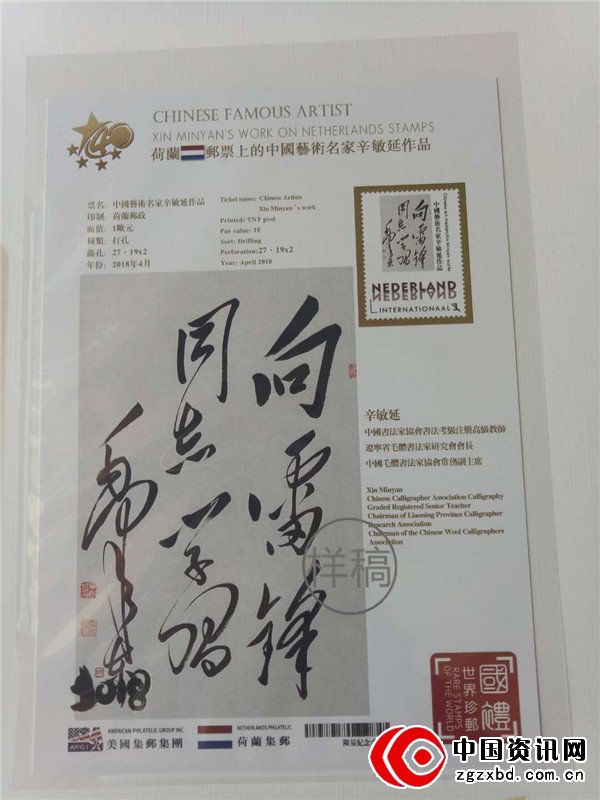 140
CHINESE FAMOUS ARTIST
XIN MINYAN'S WORK ON NETHERLANDS STAMPS
荷蘭郵票上的中國藝術名家辛敏延作品
票名：中國藝術名家辛敏延作品
印制：荷蘭郵政
面值：1歐元
種類：打孔
齒孔：27·19x2
年份：2018年4月
Ticket name: Chinese Artists
Xin Minyan's work
Printed: TNT post
Par value: 1€
Sort: Drilling
Perforation:27·19x2
Year: April 2018
向雷鋒
同志學習
中國藝術名家辛敏延作品
NEDERLAND
INTERNATIONAAL
向雷鋒
同志學習
2018
辛敏延
中國書法家協會書法考級注冊高級教師
遼寧省毛體書法家研究會會長
中國毛體書法家協會常務副主席
Xin Minyan
Chinese Calligrapher Association Calligraphy
Graded Registered Senior Teacher
Chairman of Liaoning Province Calligrapher
Research Association
Chairman of the Chinese Wool Calligraphers
Association
样稿
國禮
世界珍郵
RARE STAMPS
OF THE WORLD
APGI
AMERICAN PHILATELIC GROUP INC
美國集郵集團
NETHERLANDS PHILATELIC
荷蘭集郵
限量紀念
中国资讯网
zgzxbd.com.cn